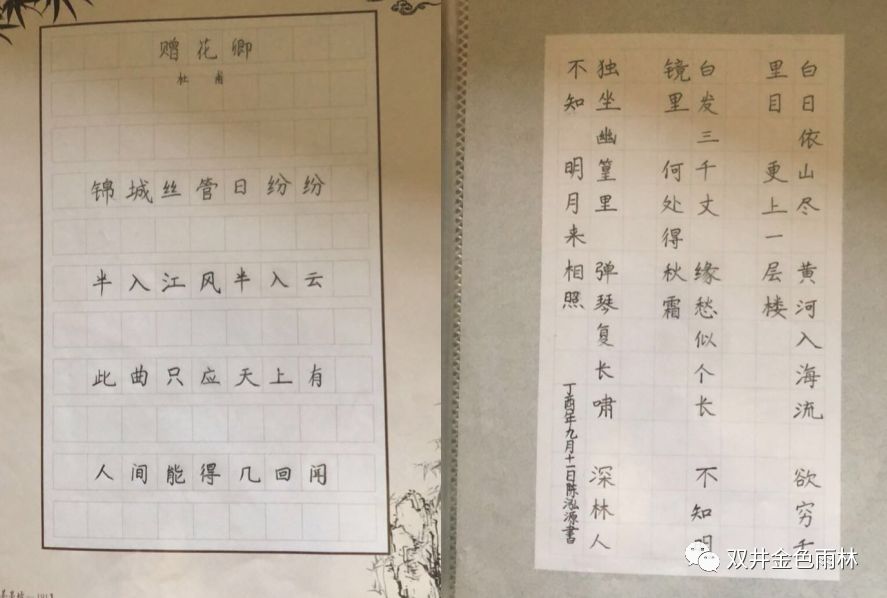 赠花卿
杜甫
锦城丝管日纷纷
半入江风半入云
此曲只应天上有
人间能得几回闻
白日依山尽 黄河入海流 欲穷千
里目 更上一层楼
白发三千丈 缘愁似个长 不知明
镜里 何处得秋霜
独坐幽篁里 弹琴复长啸 深林人
不知 明月来相照
丁酉年九月十一日陈泓源書
双井金色雨林